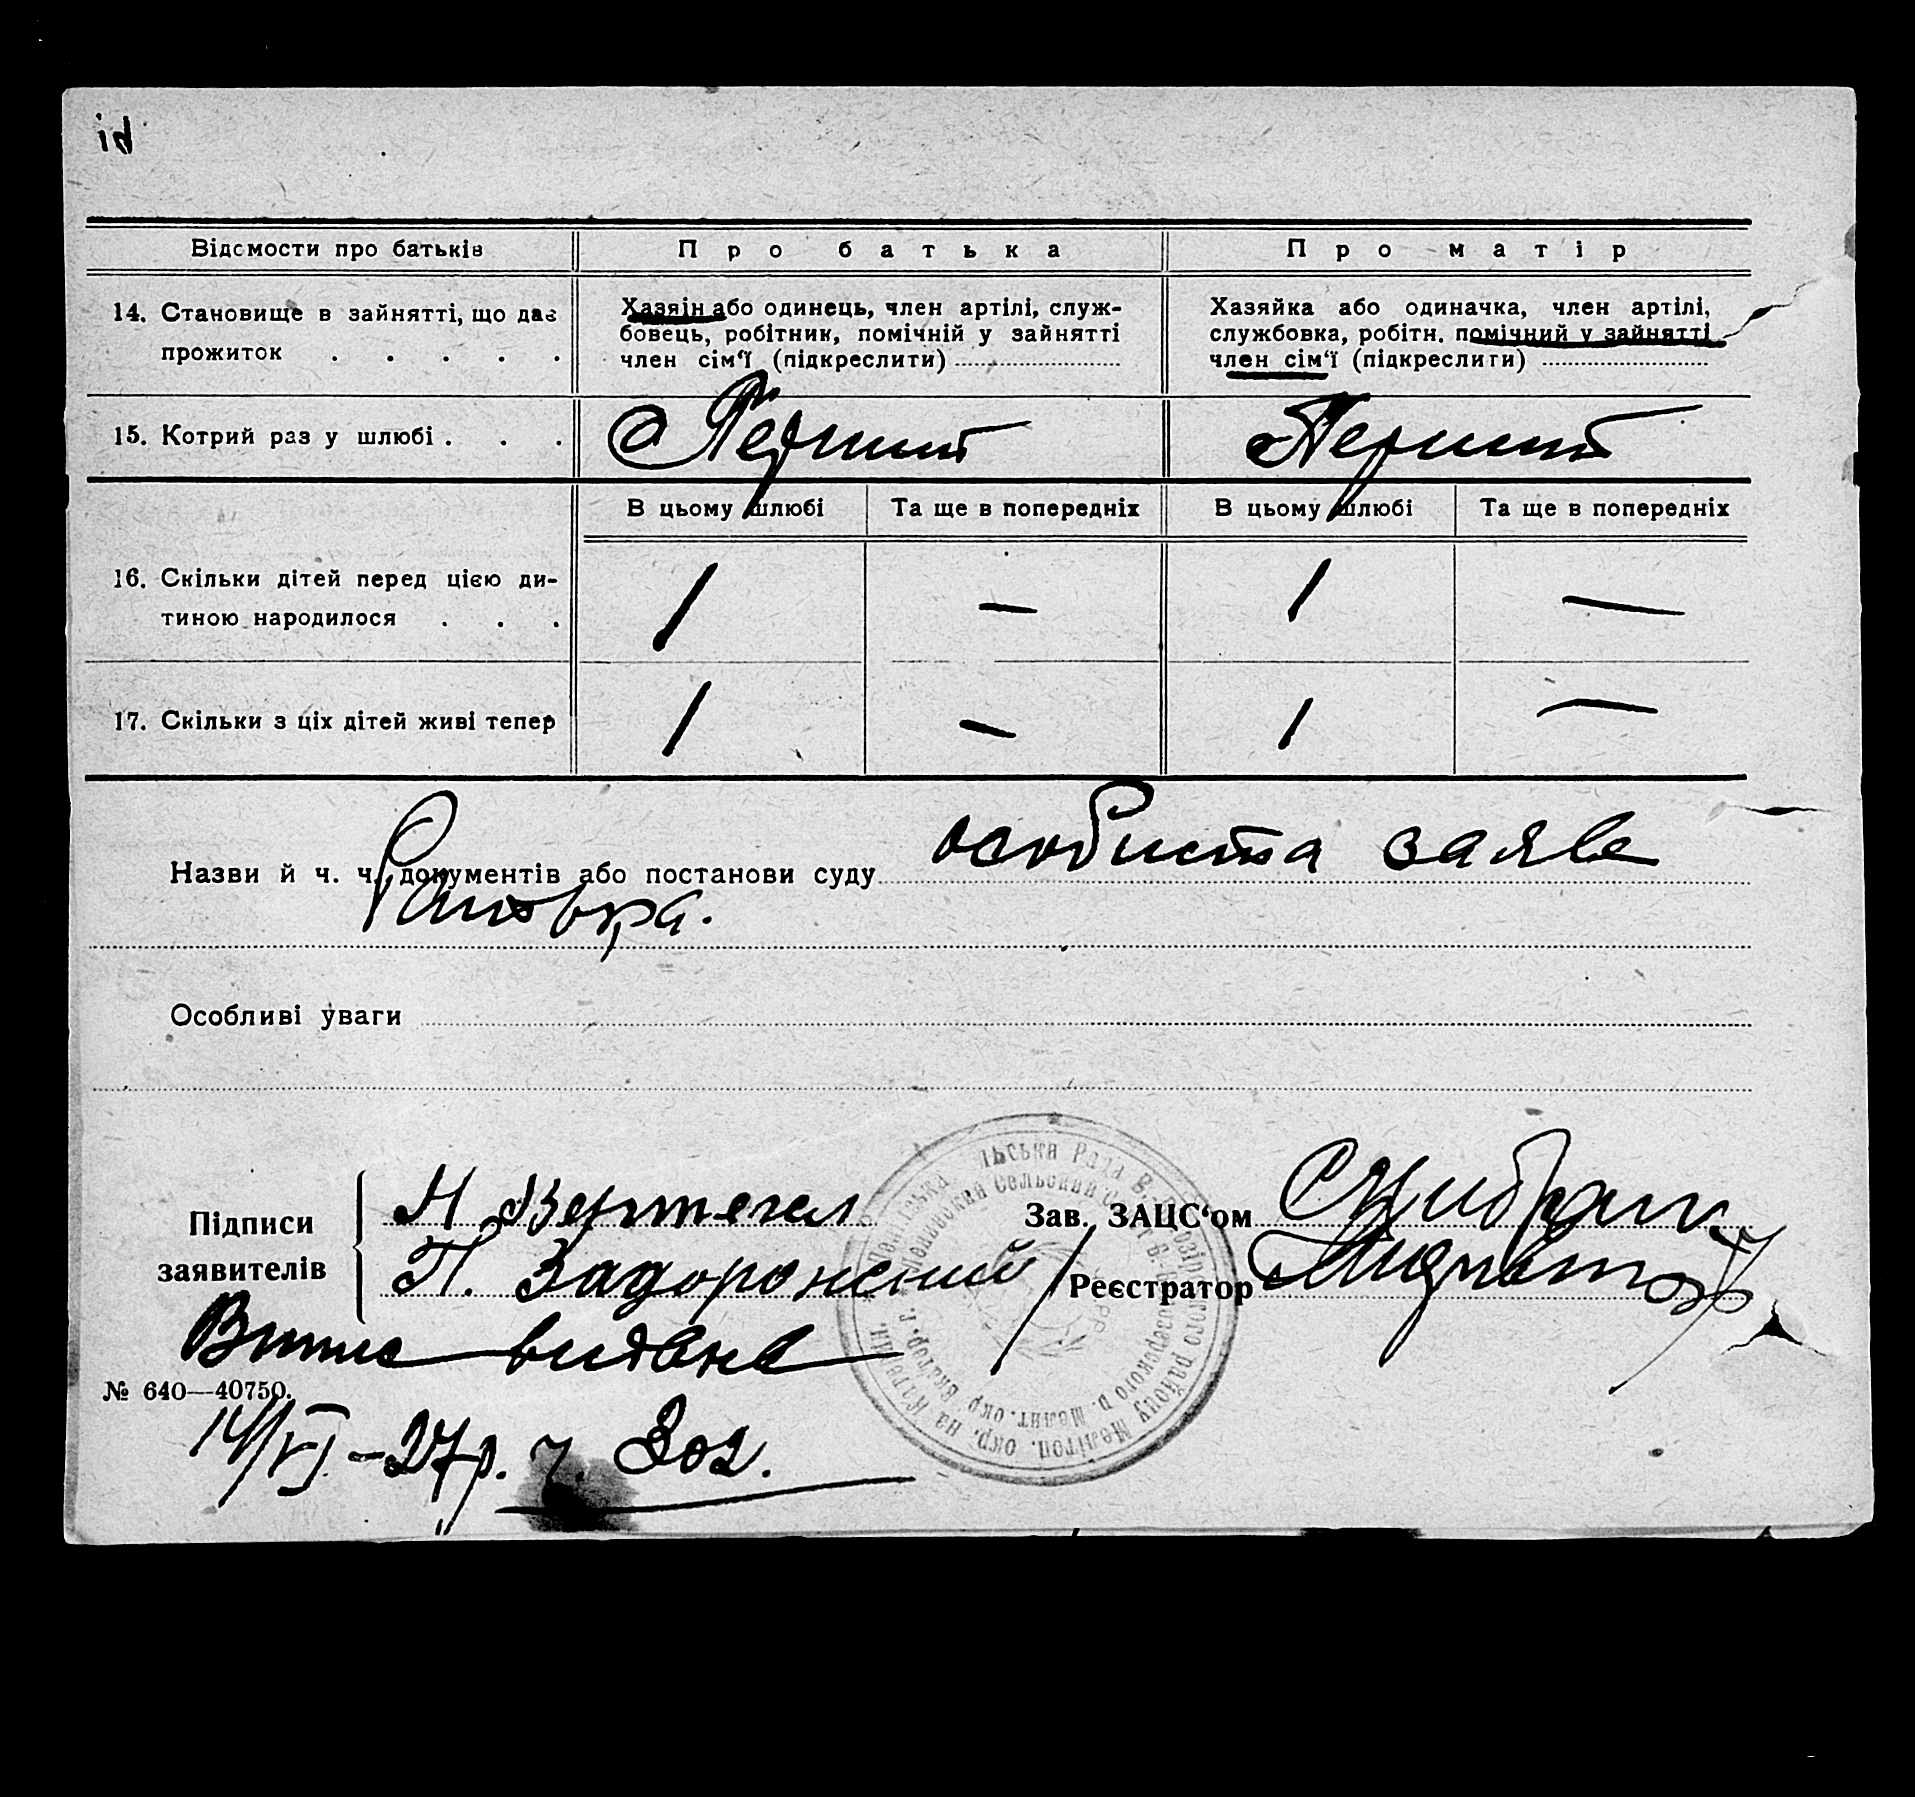 Відомости про батьків
Про батька
Про матір
14. Становище в зайнятті, що дає
прожиток . . . . .
Хазяін або одинець, член артілі, служ-
бовець, робітник, помічній у зайнятті
член сім‘ї (підкреслити)
Хазяйка або одиначка, член артілі,
службовка, робітн. помічний у зайнятті
член сім‘ї (підкреслити)
15. Котрий раз у шлюбі . . .
Перший
Перший
В цьому шлюбі
Та ще в попередніх
В цьому шлюбі
Та ще в попередніх
16. Скільки дітей перед цією ди-
тиною народилося . . .
1
—
1
—
17. Скільки з ціх дітей живі тепер
1
—
1
—
Назви й ч. ч. документів або постанови суду особиста заява
Особливі уваги
Підписи
заявителів
П. Задорожний
Зав. ЗАЦС‘ом
Реєстратор
видана
№ 640—40750.
14/VI-27р. ч. 302.